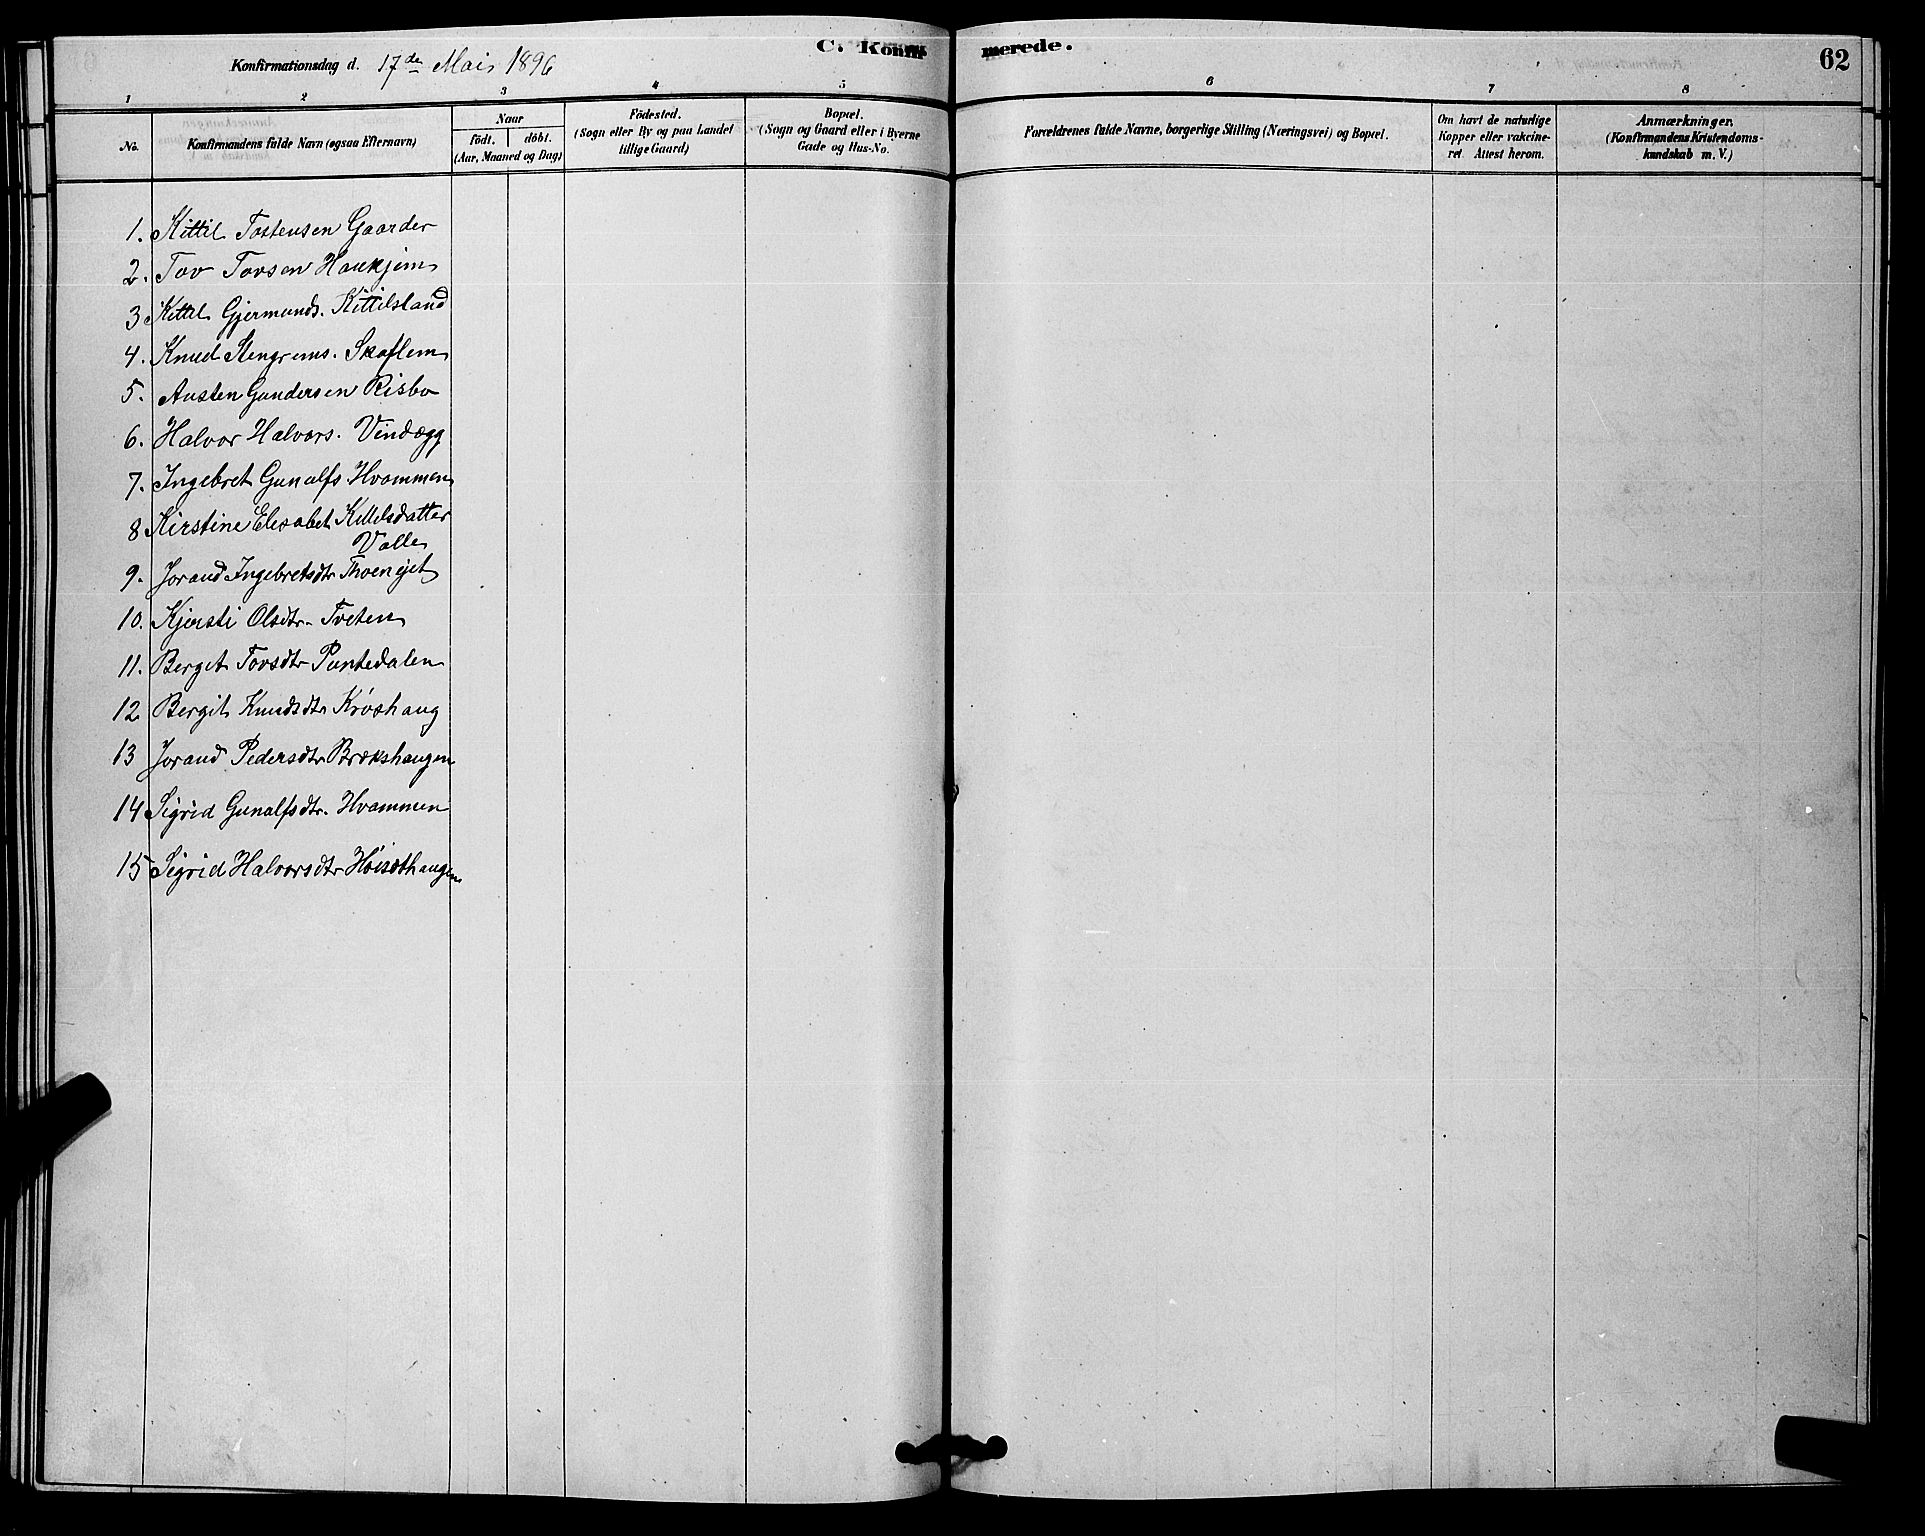 C. Konfirmerede.
62
Konfirmationsdag d. 17de Mai 1896
1 2 3 4 5 6 7 8
No.
Konfirmandens fulde Navn (ogsaa Efternavn)
Naar
födt. döbt.
(Aar, Maaned og Dag)
Födested.
(Sogn eller By og paa Landet
tillige Gaard)
Bopæl.
(Sogn og Gaard eller i Byerne
Gade og Hus-No.
Forældrenes fulde Navne, borgerlige Stilling (Næringsvei) og Bopæl.
Om havt de naturlige
Kopper eller vakcine-
ret Attest herom.
Anmærkninger.
(Konfirmandens Kristendoms-
kundskab m. V.)
1. Kittil Tostensen Gaarder
2. Tov Tovsen Haukjem
3 Kittil Gjermunds. Kittilsland
4. Knud Stengrems. Skaflem
5. Austen Gundersen Risbo
6. Halvor Halvors. Vindægg
7. Ingebret Gunulfs Hvammen
8 Kirstine Elesabet Kittilsdatter
Valle
9. Jorand Ingebretsdtr
10. Kjersti Olsdtr. Tveten
11. Berget Tovsdtr Puntedalen
12 Bergit Knudsdtr Kröshaug
13 Jorand Pedersdtr Brækshaugen
14 Sigrid Gunulfsdtr. Hvammen
15 Sigrid Halvorsdtr